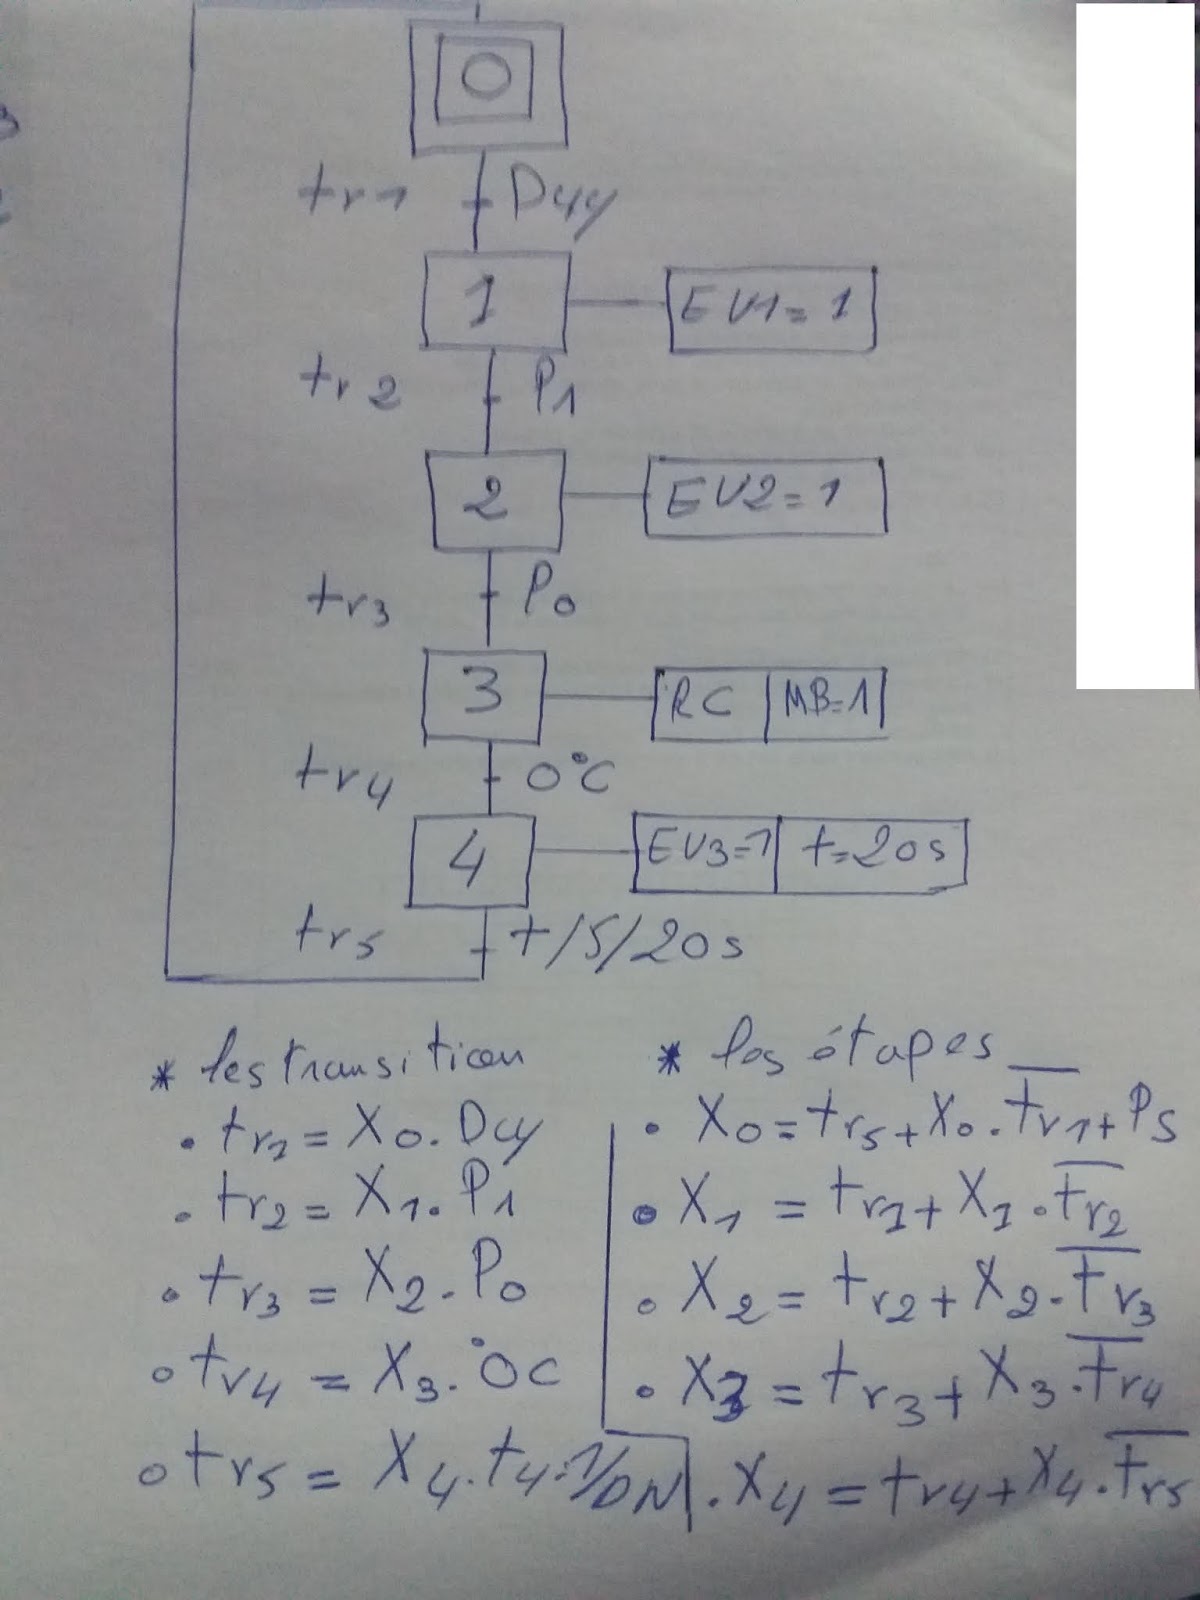 0
tr1 Dyy
1 EV1=1
tr2 P1
2 EV2=1
tr3 P0
3 RC MB=1
tr4 0°C
4 EV3=1 t=20s
tr5 t/5/20s
* les transition
• tr1 = X0. Dcy
• tr2 = X1. P1
• tr3 = X2. P0
• tr4 = X3. °0C
• tr5 = X4. t4. 1/DN
* les étapes
• X0 = tr5 + X0 . t̅r̅1̅ + PS
• X1 = tr1 + X1 . t̅r̅2̅
• X2 = tr2 + X2 . t̅r̅3̅
• X3 = tr3 + X3 . t̅r̅4̅
• X4 = tr4 + X4 . t̅r̅5̅